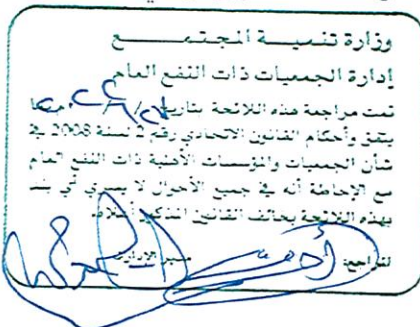 وزارة تنمية المجتمع
إدارة الجمعيات ذات النفع العام
تمت مراجعة هذه اللائحة بتاريخ / / بما
يتفق وأحكام القانون الاتحادي رقم 2 لسنة 2008 في
شأن الجمعيات والمؤسسات الأهلية ذات النفع العام
مع الإحاطة أنه في جميع الأحوال لا يسري أي بند
بهذه اللائحة يخالف القانون المذكور أعلاه.
المراجع: مدير الإدارة